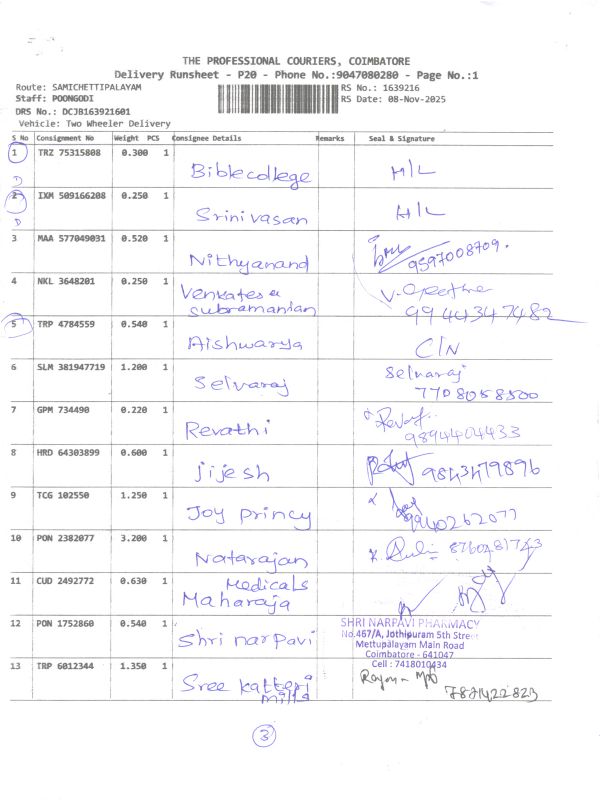 THE PROFESSIONAL COURIERS, COIMBATORE
Delivery Runsheet - P20 - Phone No.:9047080280 - Page No.:1
Route: SAMICHETTIPALAYAM RS No.: 1639216
Staff: POONGODI RS Date: 08-Nov-2025
DRS No.: DCJB163921601
Vehicle: Two Wheeler Delivery
S No Consignment No Weight PCS Consignee Details Remarks Seal & Signature
1 TRZ 75315808 0.300 1
D Biblecollege H/L
2 IXM 509166208 0.250 1
D Srinivasan H/L
3 MAA 577049031 0.520 1
Nithyanand 9597008709.
4 NKL 3648201 0.250 1
Venkatesa V. Geetha
subramanian 9944347482
5 TRP 4784559 0.540 1
Aishwarya C/N
6 SLM 381947719 1.200 1 Selvaraj
Selvaraj 7708058500
7 GPM 734490 0.220 1
Revathi 9894404433
8 HRD 64303899 0.600 1
jijesh 9843479896
9 TCG 102550 1.250 1
Joy princy 9940262077
10 PON 2382077 3.200 1
Natarajan
11 CUD 2492772 0.630 1
Medicals
Maharaja
12 PON 1752860 0.540 1
Shri narpavi
SHRI NARPAVI PHARMACY
No.467/A, Jothipuram 5th Street
Mettupalayam Main Road
Coimbatore - 641047
Cell : 7418010434
13 TRP 6012344 1.350 1
Sree katteri
mills
3